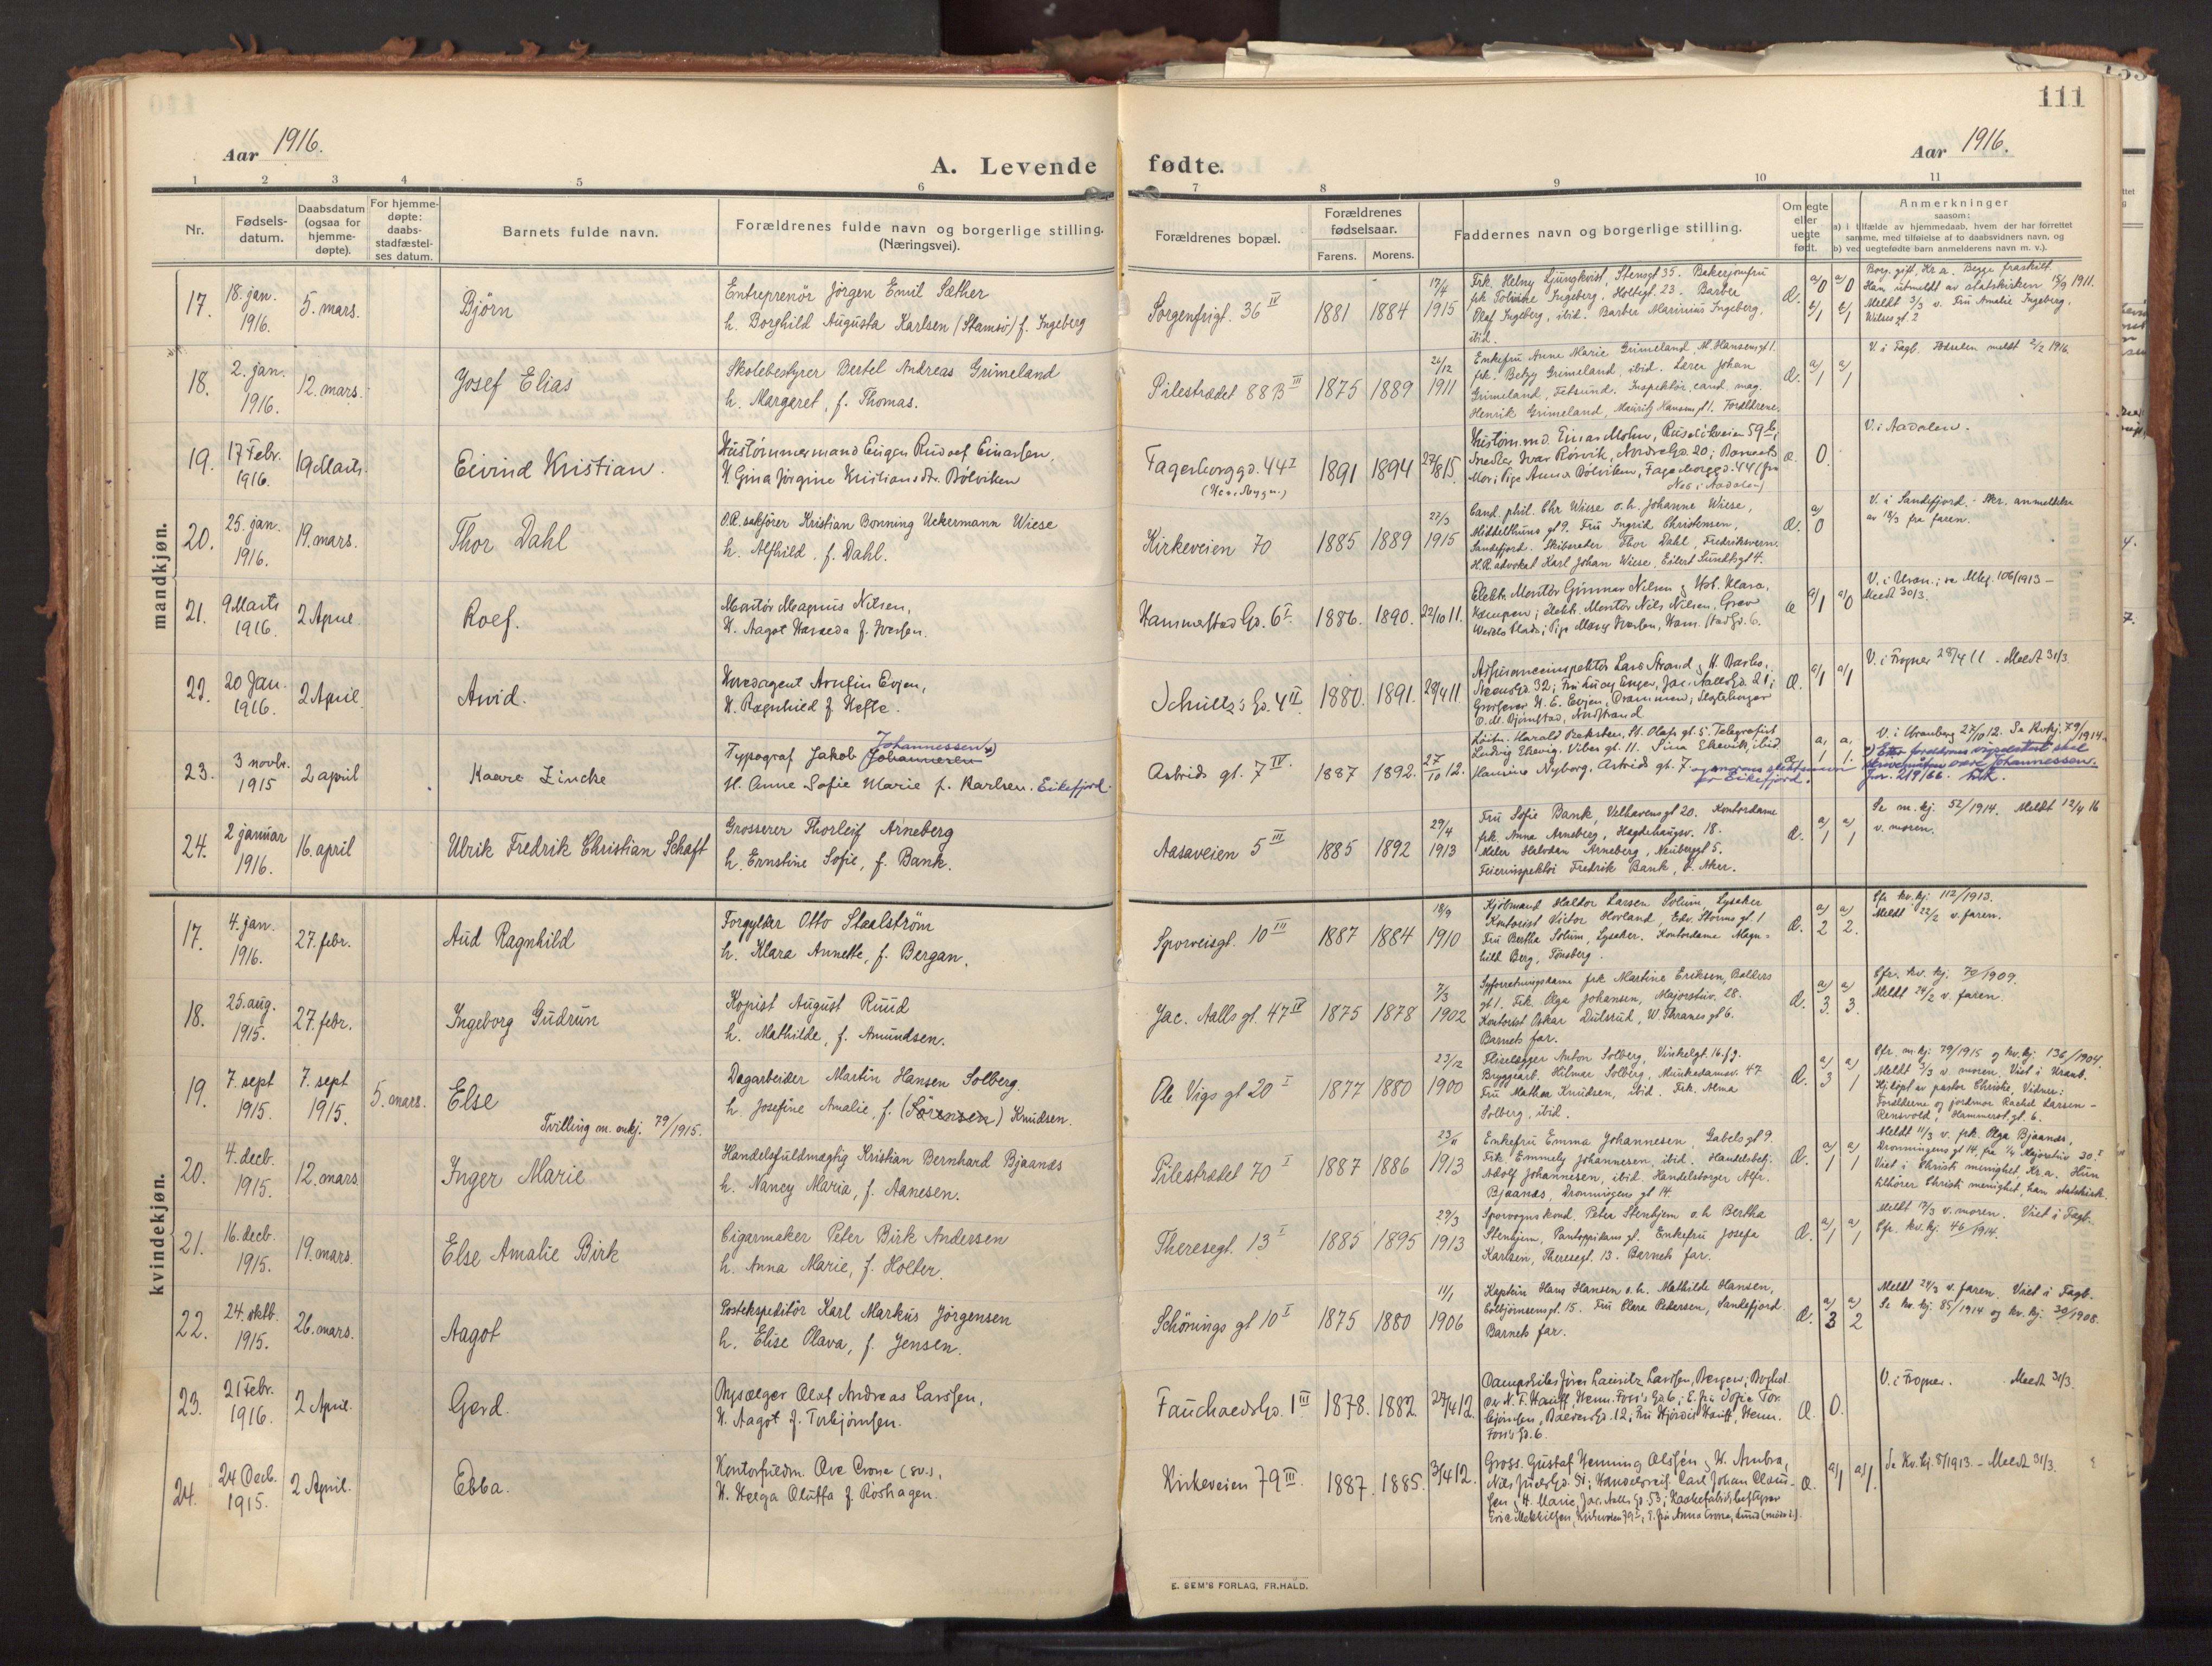 111
Aar 1916.
A. Levende fødte.
Aar 1916.
1 2 3 4 5 6 7 8 9 10 11
Nr.
Fødsels-
datum.
Daabsdatum
(ogsaa for
hjemme-
døpte).
For hjemme-
døpte:
daabs-
stadfæstel-
ses datum.
Barnets fulde navn.
Forældrenes fulde navn og borgerlige stilling.
(Næringsvei).
Forældrenes bopæl.
Forældrenes
fødselsaar.
Farens. Morens.
Faddernes navn og borgerlige stilling.
Om egte
eller
uegte
født.
Anmerkninger
saasom:
a) i tilfælde av hjemmedaab, hvem der har forrettet
samme, med tilføielse af to daabsvidners navn, og
b) ved uegtefødte barn anmelderens navn m. v.).
mandkjøn.
17. 18. jan. 1916. 5. mars. Bjørn
Entreprenör Jörgen Emil Sæther
h. Borghild Augusta Karlsen (Stamsö) f. Ingeberg
Sorgenfrigt. 36 IV 1881 1884 17/4 1915
Frk. Helny Ljungkvist, Stensgt 35. Bakerjomfru
frk. Ingeberg, Holtegt. 23. Barber
Olaf Ingeberg, ibid. Barber Marinius Ingeberg,
ibid.
Borg. gift, Kr.a. Begge fraskilt.
Han utmeldt av statskirken 15/9 1911.
Meldt 3/3 v. Fru Amalie Ingeberg.
Wilsesgt. 2
18. 2. jan. 1916. 12. mars. Josef Elias
Skolebestyrer Bertel Andreas Grimeland
h. Margaret, f. Thomas.
Pilestrædet 88B III 1875 1889 26/12 1911
Enkefru Anne Marie Grimeland, M. Hansensgt 1.
frk. Betzy Grimeland, ibid. Lærer Johan
Grimeland, Fetsund. Inspektör, cand. mag.
Henrik Grimeland, Mauritz Hansens gt 1. Forældrene.
V. i Fagb. Födselen meldt 2/2 1916.
19. 17 Febr. 1916. 19 Marts. Eivind Kristian.
Hustömmermand Eugen Rudolf Einarsen,
H. Gina Jörgine Kristiansdtr. Bölviken
Fagerborggd. 44 I 1891 1894 27/8 15
Hustöm.md. Einar Mohn, Ruselökveien 59 b;
Snedker Ivar Rörvik, Nordregd. 20; Barnets
Mor; Pige Anna Bölviken, Fagerborggd. 44 (fra
Nes i Aadalen)
V. i Aadalen.
20. 25. jan. 1916. 19. mars. Thor Dahl
O.R. sakförer Kristian Bonning Uckermann Wiese
h. Alfhild, f. Dahl.
Kirkeveien 70 1885 1889 27/3 1915
Cand. phil. Chr Wiese o.h. Johanne Wiese,
Middelthuns gt 9. Fru Ingrid Christensen,
Sandefjord. Skibsreder Thor Dahl, Fredriksvern.
H.R. advokat Karl Johan Wiese, Eilert Sundts gt 4.
V. i Sandefjord. Skr. anmeldelse
av 18/3 fra faren.
21. 9 Marts 1916. 2 April Rolf.
Montör Magnus Nilsen,
H. Aagot f. Iversen.
Hammerstad Gd. 6 I 1886. 1890. 22/10 11.
Elektr. Montör Gunnar Nilsen & H. Klara,
Kampen; Elektr. Montör Nils Nilsen, Grev
Wedels Plads; Pige Mary Iversen, Ham.stadgd. 6.
V. i Uran.; se Mkj. 106/1913 –
Meldt 30/3.
22. 20 Jan. 1916. 2 April. Arvid.
Hovedagent Arnfin Evjen,
H. Ragnhild f. Hefte.
Schultz's Gd. 4 II 1880. 1891. 29/4 11
V. i Frogner 28/4 11 – Meldt 31/3
23. 3 novbr. 1915 2 april Kaare Zincke
Typograf Jakob Johannesen Johannessen x)
H. Anne Sofie Marie f. Karlsen. Eikefjord.
Astrids gt. 7 IV. 1887 1892. 27/10 12.
Löitn. Harald Bekken, St. Olafs gt. 5. Telegrafist
Ludvig Ekevig, Vibes gt. 11. Sina Ekevik, ibid
Hansine Nyborg, Astrids gt. 7.
V. i Uranborg 27/10 12. Se Kvkj. 79/1914.
24. 2 januar 1916. 16. april Ulrik Fredrik Christian Schaft
Grosserer Thorleif Arneberg
h. Ernstine Sofie, f. Bank.
Aasaveien 5 III 1885 1892 29/4 1913
Fru Sofie Bank, Velhavensgt 20. Kontordame
frk Anna Arneberg, Hægdehaugsv. 18.
Maler Halvdan Arneberg, Neuberggt 5.
Feierinspektör Fredrik Bank, V. Aker.
Se m.kj. 52/1914. Meldt 12/4 16
v. moren.
kvindekjøn.
17. 4. jan. 1916. 27. febr. Aud Ragnhild
Forgylder Otto Staalström
h. Klara Annette, f. Bergan.
Sporveisgt. 10 III 1887 1884 18/9 1910
Kjöbmand Haldor Larsen Solum, Lysaker
Kontorist Victor Hovland, Edv. Storms gt. 1
Fru Bertha Solum, Lysaker. Kontordame Magn-
hild Berg, Tönsberg.
Cfr. kv.kj. 112/1913.
Meldt 22/2 v. faren.
18. 25. aug. 1915. 27. febr. Ingeborg Gudrun
Kopist August Ruud
h. Mathilde, f. Amundsen.
Jac. Aalls gt. 47 IV 1875 1878 7/3 1902
Syforretningsdame frk Martine Eriksen, Balkers
gt 1. Frk. Olga Johansen, Majorstuv. 28.
Kontorist Oskar Dulsrud, W. Thranes gt 6.
Barnets far.
Cfr. kv. kj. 70/1909.
Meldt 24/2 v. faren.
19. 7. sept 1915. 7. sept 1915. 5. mars. Else
Tvilling m. mkj. 79/1915.
Dagarbeider Martin Hansen Solberg.
h. Josefine Amalie, f. (Sörensen) Knudsen.
Ole Vigs gt 20 I 1877 1880 23/12 1900
Fliselegger Anton Solberg, Vinkelgt. 16.
Bryggearb. Hilmar Solberg, Munkedamsv. 47
Fru Mathea Knudsen, ibid. Frk. Alma
Solberg, ibid.
Cfr. m.kj. 79/1915 og kv.kj. 136/1904.
Meldt 3/3 v. moren. Viet i Uranb.
Hj.döpt av pastor Christie. Vidner:
Forældrene og jordmor Rachel Larsen-
Rensvold, Hammerst.gt. 6.
20. 4. decb. 1915. 12. mars. Inger Marie
Handelsfuldmægtig Kristian Bernhard Bjaanæs
h. Nancy Maria, f. Aanesen.
Pilestrædet 70 I 1887 1886 23/11 1913
Enkefru Emma Johannesen, Gabels gt 9.
Frk. Emmely Johannesen, ibid. Handelsbetj.
Adolf Johannesen, ibid. Handelsborger Alfr.
Bjaanæs, Dronningens gt 14.
Meldt 11/3 v. frk. Olga Bjaanæs,
Dronningens gt 14, fra 1/4 Majorstuv. 30. I
Viet i Christi menighet, Kr.a. Hun
tilhörer Christi menighet, han statskirk.
21. 16. decb. 1915. 19. mars. Else Amalie Birk
Cigarmaker Peter Birk Andersen
h. Anna Marie, f. Holter.
Theresegt. 13 I 1885 1895 29/3 1913
Sporvognskond. Peter Stenhjem o.h Bertha
Stenhjem, Pantoppidans gt. Enkefru Josefa
Karlsen, Theresegt. 13. Barnets far.
Meldt 17/3 v. moren. Viet i Fagb.
Cfr. kv. kj. 46/1914.
22. 24. oktb. 1915. 26. mars. Aagot
Postekspeditör Karl Markus Jörgensen
h. Elise Olava, f. Jensen.
Schönings gt 10 I 1875 1880 11/1 1906
Kaptein Hans Hansen o.h. Mathilde Hansen,
Colbjörnsensgt. 15. Fru Clara Pedersen, Sandefjord.
Barnets far.
Meldt 24/3 v. faren. Viet i Fagb.
Se kv. kj. 85/1914 og kv. kj. 30/1908.
23. 21 Febr. 1916. 2 April. Gerd.
Bysælger Olaf Andreas Larssen,
H. Aagot f. Torbjörnsen.
Fauchaldsgd. 1 III 1878. 1882. 24/4 12.
V. i Frogner. Meldt 31/3.
24. 24 Decb. 1915. 2 April. Ebba.
Kontorfuldm. Ove Crona (sv.),
H. Helga Oluffa f. Roshagen.
Kirkeveien 79 III. 1887. 1885. 3/4 12.
Gross. Gustaf Henning Olsen & H. Ambra,
Se Kv. kj. 8/1913. – Meldt 31/3.
E. SEM'S FORLAG, FR.HALD.